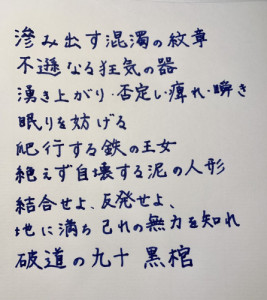 滲み出す混濁の紋章
不遜なる狂気の器
湧き上がり・否定し・痺れ・瞬き
眠りを妨げる
爬行する鉄の王女
絶えず自壊する泥の人形
結合せよ、反発せよ、
地に満ち 己れの無力を知れ
破道の九十 黒棺